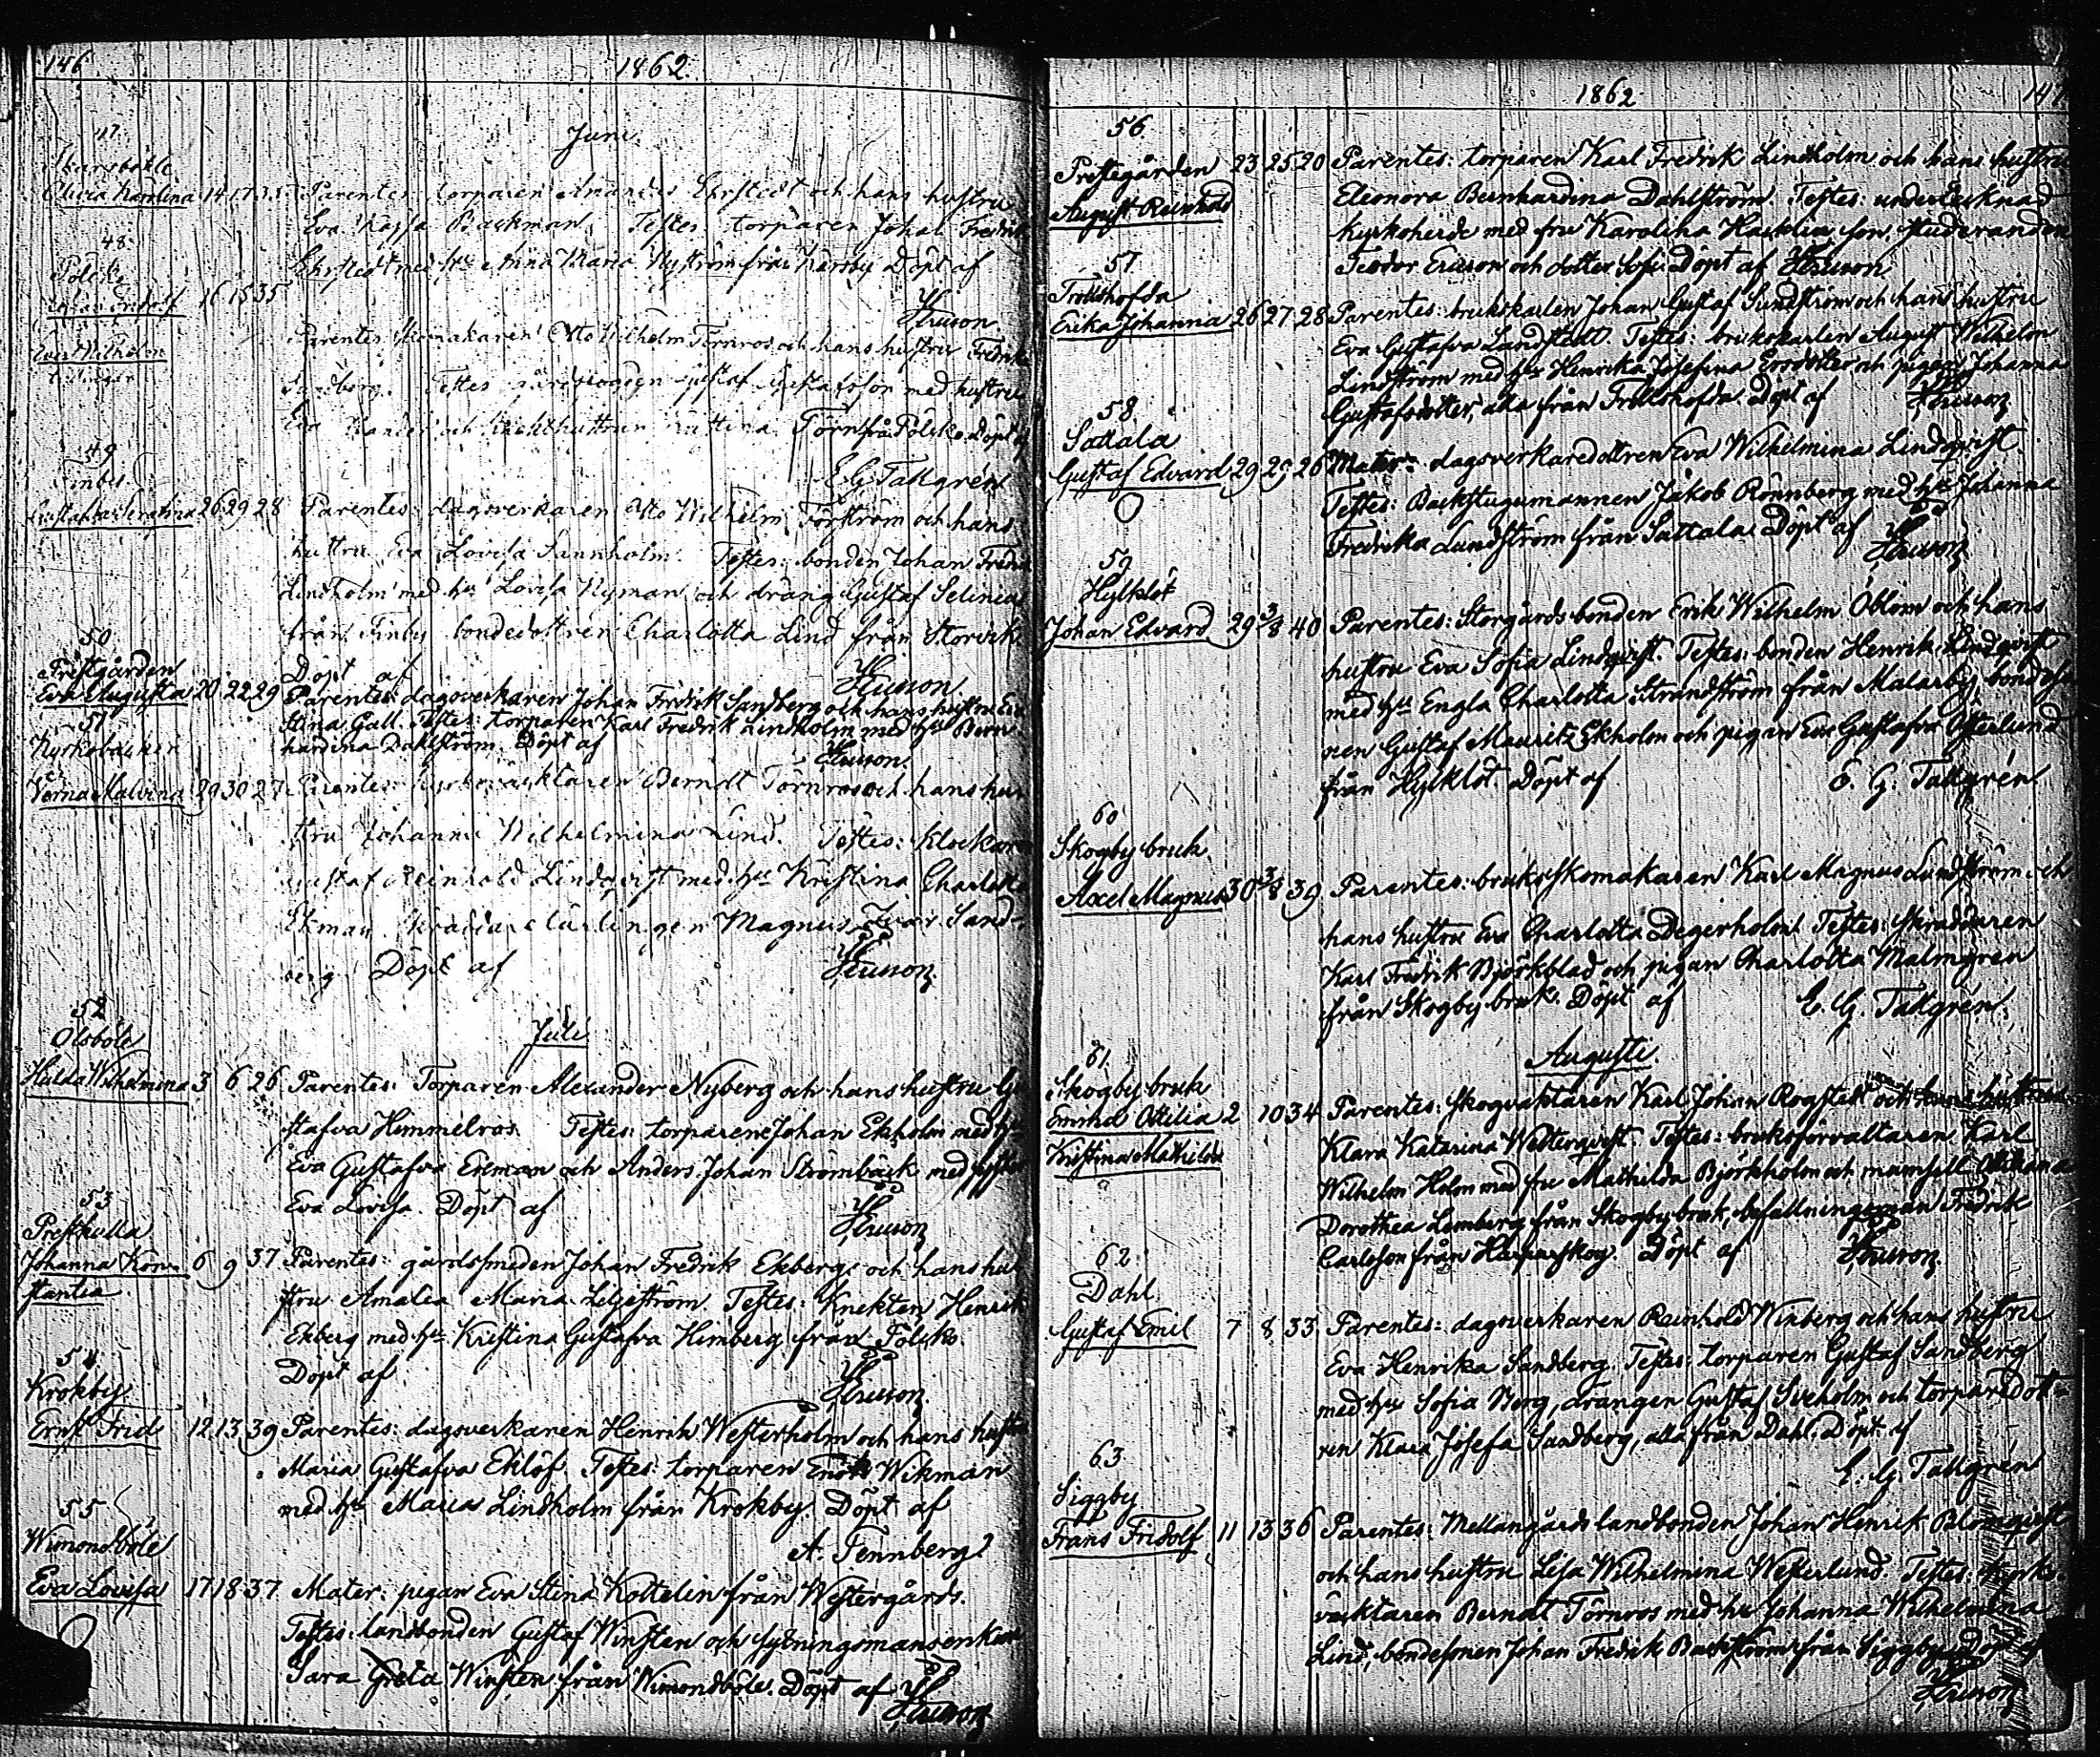 146
1862.
Juni
47
Skarsböle
Karolina 14 17 35 Parentes: torparen Amandus Ehrstedt och hans hustru
Eva Kajsa Backman. Testes: torparen Johan Fredrik
Ehrstedt med hu Anna Maria Nyström från Döpt af
Ericson
48
16 18 35
Evert Wilhelm
Parentes: Skomakaren Otto Wilhelm Törnroos och hans hustru Fredrika
Sandberg. Testes: Gustaf Gustafsson med hustru
Eva och Törn från Döpt af
E. G. Tallgrén
49
Finby
Gustafva Serafina 26 29 28 Parentes: dagsverkaren Otto Wilhelm Förström och hans
hustru Eva Lovisa Sannholm. Testes: bonden Johan Fredrik
Lindholm med hu Lovisa Nyman och dräng Gustaf Selin
från Finby bondedottren Charlotta Lind från Storvik
Döpt af Ericson
50
Prestgården
Eva Augusta 20 22 29 Parentes: dagsverkaren Johan Fredrik Sandberg och hans hustru Eva
Stina Gall. Testes: torparen Karl Fredrik Lindholm med hu Bern-
hardina Dahlström. Döpt af
Ericson
51
Kyrkobacken
Verna Malvina 29 30 27 Parentes: kyrkoväktaren Berndt Törnroos och hans hu-
stru Johanna Wilhelmina Lind. Testes: Klockaren
Gustaf Reinhold Lindqvist med hu Kristina Charlotta
Ekman, Magnus Ivar Sand-
berg. Döpt af Ericson
Juli
52
Olsböle
Hulda Wilhelmina 3 6 26 Parentes: Torparen Alexander Nyberg och hans hustru Gu-
stafva Himmelros. Testes: torparene Johan Ekholm med hu
Eva Gustafva Ekman och Anders Johan Strömbäck med syster
Eva Lovisa. Döpt af
Ericson
53
Prestkulla
Johanna Kon- 6 9 37 Parentes: gårdssmeden Johan Fredrik Ekberg och hans hu-
stantia stru Amalia Maria Liljeström. Testes: Knekten Henrik
Ekberg med hu Kristina Gustafva Himberg från Pölsko.
Döpt af Ericson
54
Krokby
Ernst Frid 12 13 39 Parentes: dagsverkaren Henrik Westerholm och hans hustru
Maria Gustafva Eklöf. Testes: torparen Enok Wikman
med hu Maria Lindholm från Krokby. Döpt af
A. Tennberg
55
Wimonböle
Eva Lovisa 17 18 37 Mater: pigan Eva Stina Kottelin från Westergårds.
Testes: landbonden Gustaf Winsten och sytningsmansenkan
Sara Greta Winsten från Wimonböle. Döpt af
Ericson
1862
147
56
Prestegården 23 25 20 Parentes: torparen Karl Fredrik Lindholm och hans hustru
August Reinhold Eleonora Bernhardina Dahlström. Testes: undertecknad
kyrkoherde med fru Karolina Hacklin, son, studeranden
Teodor Ericson och dotter Sofi. Döpt af Ericson
57
Trollshofda
Erika Johanna 26 27 28 Parentes: brukskarlen Johan Gustaf Sundström och hans hustru
Eva Gustafva Landstedt. Testes: brukskarlen August Wilhelm
Lindström med hu Henrika Josefina Ersdotter och pigan Johanna
Gustafsdotter, alla från Trollshofda. Döpt af Ericson
58
Sattala
Gustaf Edvard 29 29 26 Mater: dagsverkaredottren Eva Wilhelmina Lindqvist.
Testes: Backstugumannen Jakob Rönnberg med hu Johanna
Fredrika Lundström från Sattala. Döpt af
Ericson
59
Hylklöt
Johan Edvard 29 3/8 40 Parentes: Storgårds-bonden Erik Wilhelm Öblom och hans
hustru Eva Sofia Lindqvist. Testes: bonden Henrik Lindqvist
med hu Engla Charlotta Strandström från Malarby, bondeso-
nen Gustaf Mauritz Ekholm och pigan Eva Gustafva Österlund
från Hylklöt. Döpt af E. G. Tallgrén
60
Skogby bruk.
Axel Magnus 30 3/8 39 Parentes: bruksskomakaren Karl Magnus Lundström och
hans hustru Eva Charlotta Degerholm. Testes: skräddaren
Karl Fredrik Björkblad och pigan Charlotta Malmgren
från Skogby bruk. Döpt af E. G. Tallgrén.
Augusti.
61
Skogby bruk
Emma Ottilia 2 10 34 Parentes: skogvaktaren Karl Johan Rogstedt och hans hustru
Kristina Mathilda Klara Katarina Westerqvist. Testes: bruksförvaltaren Karl
Wilhelm Holm med fru Mathilda Björkholm och mamsell
Dorothea Lemberg från Skogby bruk, befallningsman Fredrik
Carlsson från Harparskog. Döpt af Ericson
62
Dahl.
Gustaf Emil 7 8 33 Parentes: dagsverkaren Reinhold Winberg och hans hustru
Eva Henrika Sandberg. Testes: torparen Gustaf Sandberg
med hu Sofia Borg, drängen Gustaf Sveholm och torparedott-
ren Klara Josefa Sandberg, alla från Dahl. Döpt af
E. G. Tallgrén
63
Siggby
Frans Fridolf 11 13 36 Parentes: Mellangårds landbonden Johan Henrik Blomqvist
och hans hustru Lisa Wilhelmina Westerlund. Testes: kyrko-
väcktaren Berndt Törnroos med hu Johanna Wilhelmina
Lind, bondesonen Johan Fredrik Backström från Siggby. Döpt af
Ericson